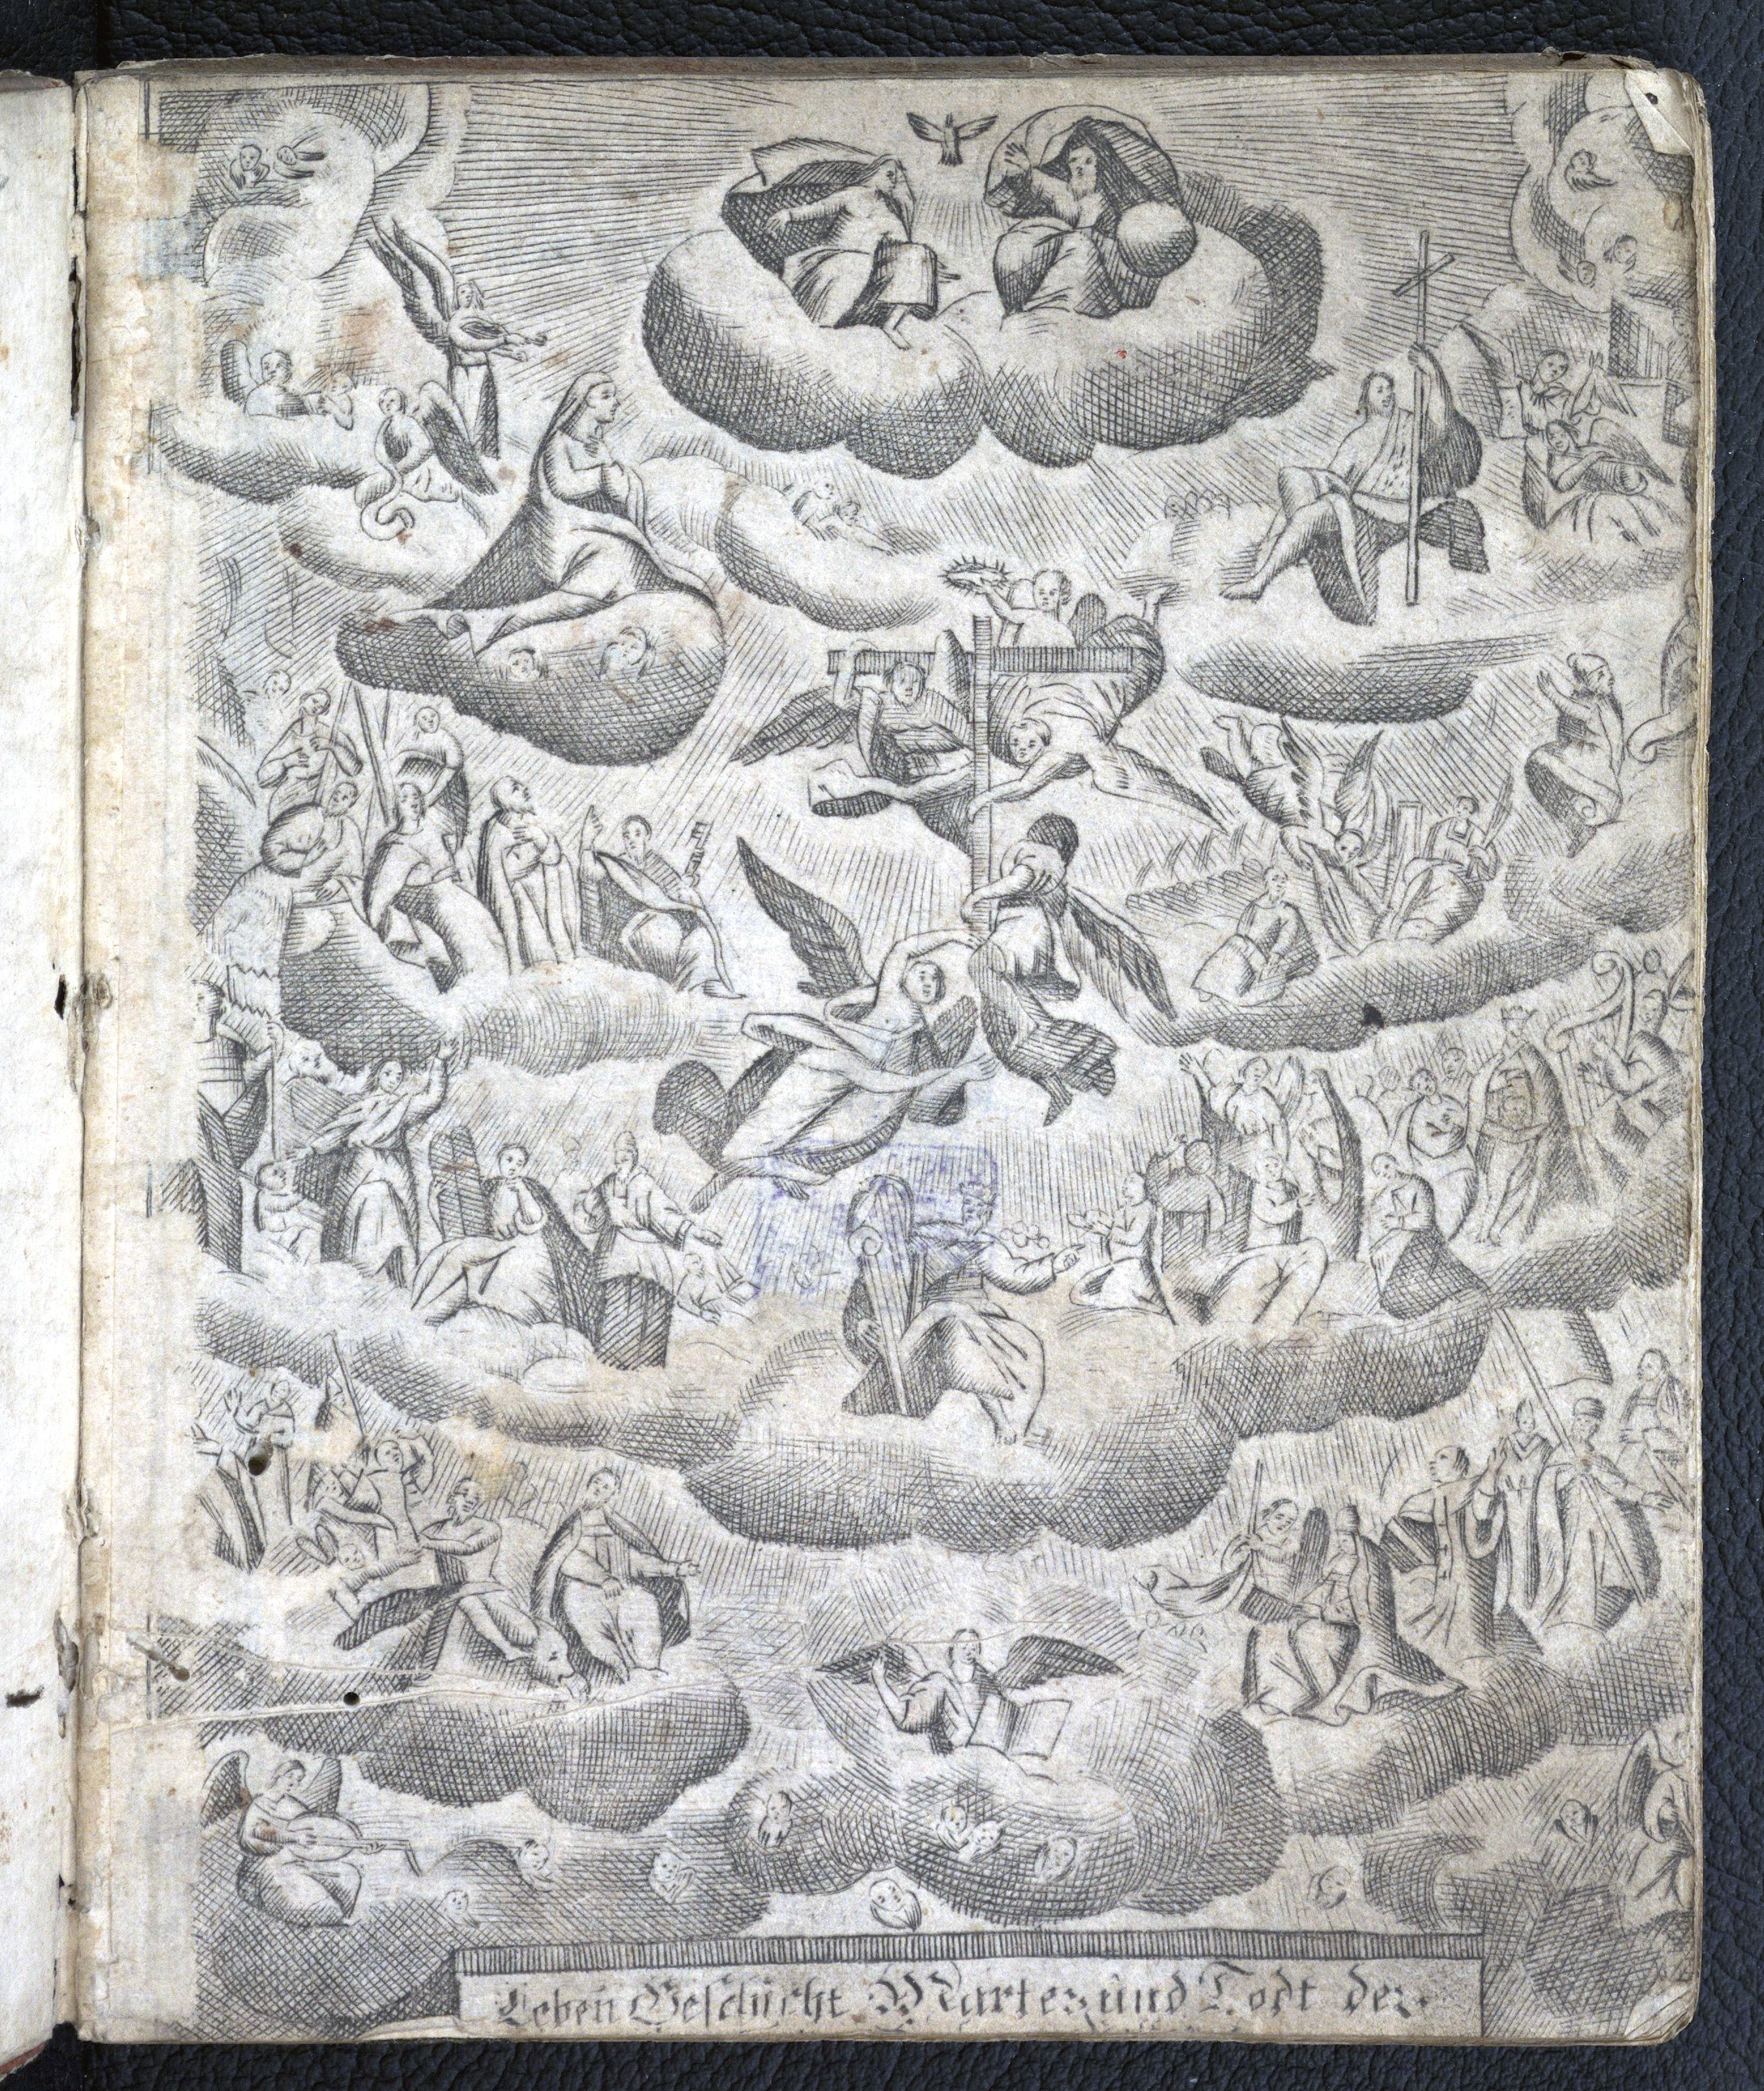 Leben Geschicht Marter und Todt der